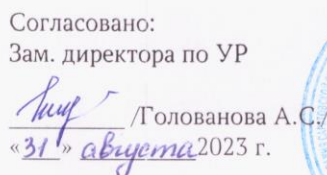 Согласовано:
Зам. директора по УР
/Голованова А.С./
«31» августа 2023 г.